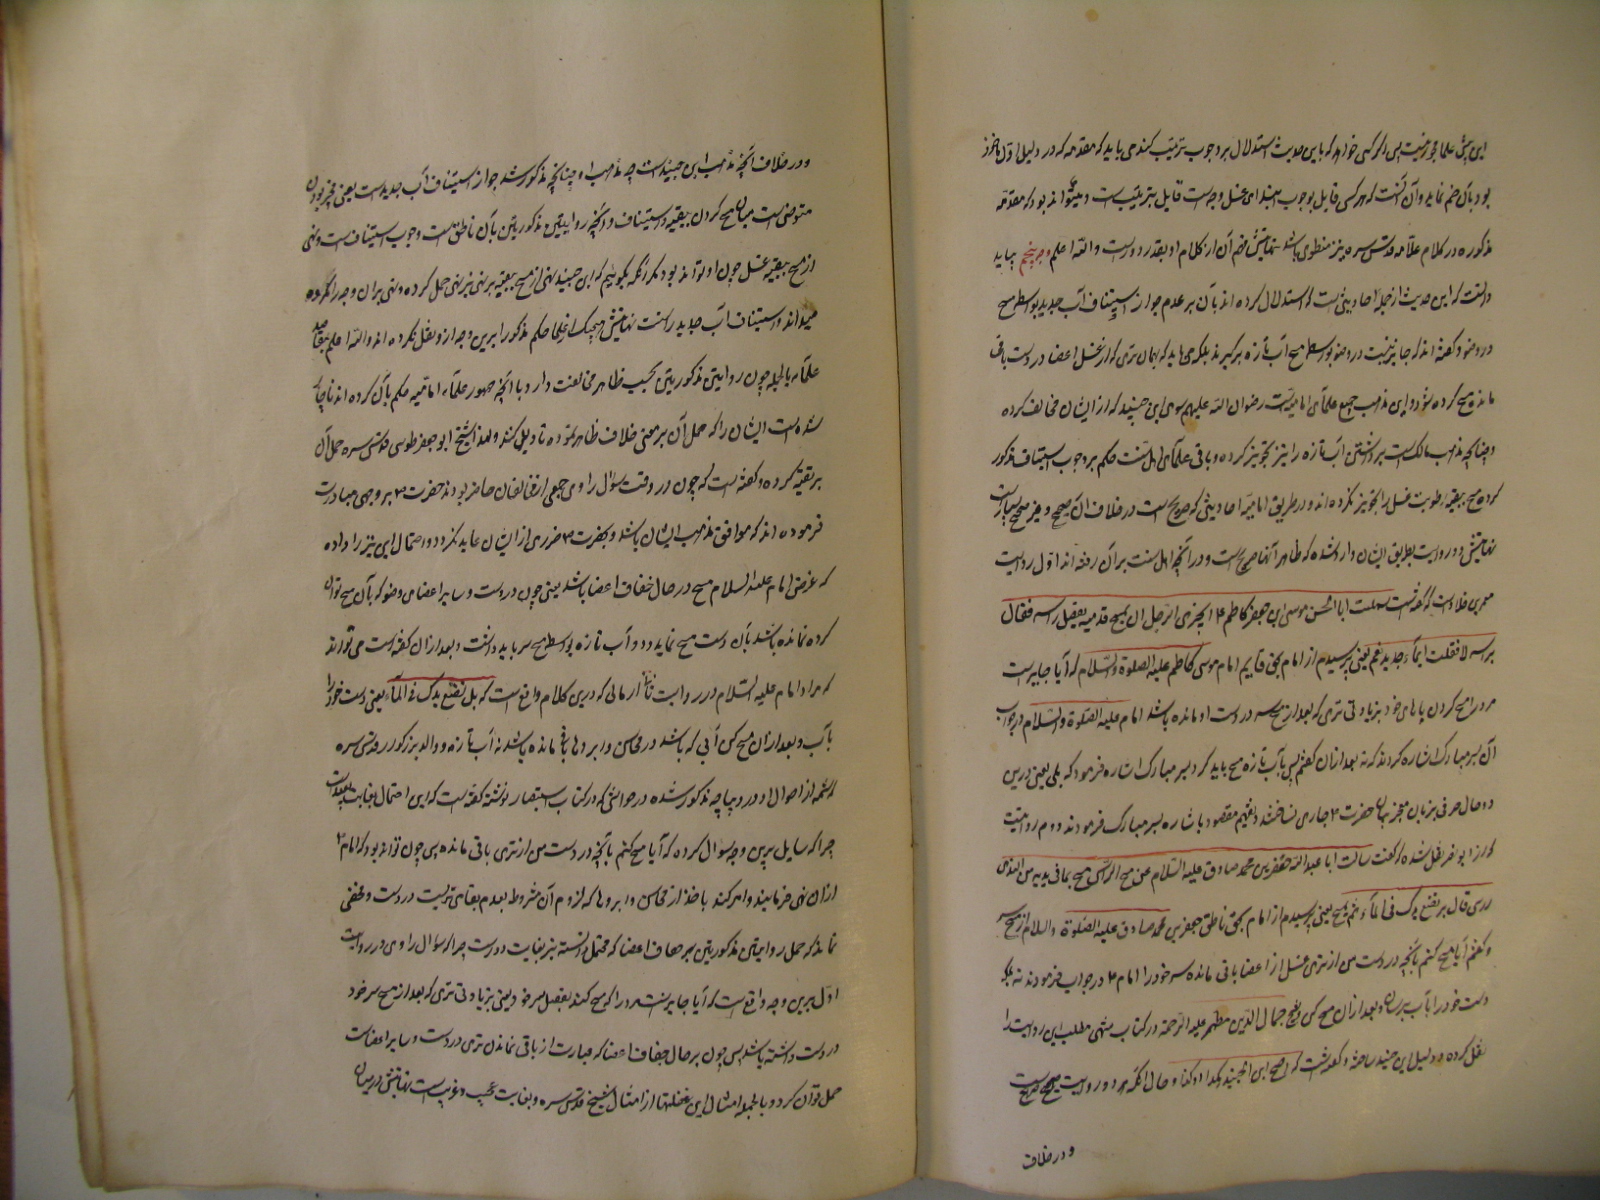 این پیش علما حجت نیست پس اگر کسی خواهد که باین حدیث استدلال بر وجوب ترتیب کند می باید که مقدمه که در دلیل اول ماخوذ
بود بآن ضم نماید و آن آنست که هر کسی قایل بوجوب ابتدای غسل وجه است قایل بترتیب است و میتواند بود که مقدمه
مذکوره در کلام علامه قدس سره نیز منطوی باشد نهایتش فهم آن از کلام او بقدر دورست والله اعلم و مر پنجم بیاید
دانست که این حدیث از جمله احادیثی است که استدلال کرده اند بآن بر عدم جواز استیناف آب جدید بواسطه مسح
در وضو و گفته اند که جایز نیست در وضو بواسطه مسح آب تازه برگیرند بلکه می باید که بهمان تری که از غسل اعضا در دست باقی
مانده مسح کرده شود و این مذهب جمیع علمای امامیه است رضوان الله علیهم سوی ابن جنید که از ایشان مخالف کرده
و چنانچه مذهب مالک است برداشتن آب تازه را نیز تجویز کرده و باقی علمای اهل سنت حکم بر وجوب استیناف مذکور
کرده مسح ببقیه رطوبت غسل را تجویز نکرده اند و در طریق امامیه احادیثی که صریح است در خلاف آن صحیح و غیر صحیح بسیارست
نهایتش دو روایت بطریق ایشان وارد شده که ظاهر آنها صریح است در آنچه اهل سنت بر آن رفته اند اول روایت
معمر بن خلادست که گفته است سالت ابا الحسن موسی ابن جعفر کاظم ع ایجزی الرجل ان یمسح قدمیه بفضل راسه فقال
براسه لا فقلت ابماء جدید نعم یعنی پرسیدم از امام بحق قایم امام موسی کاظم علیه الصلوة والسلام که آیا جایز است
مرد را مسح کردن پاهای خود بزیادتی تری که بعد از مسح سر در دست او مانده باشد امام علیه الصلوة والسلام در جواب
آن بسر مبارک اشاره کردند که نه بعد از آن گفتم پس بآب تازه مسح باید کرد بسر مبارک اشاره فرمود که بلی یعنی درین
دو حال حرفی بزبان معجز بیان حضرت ع جاری نساختند و تفهیم مقصود باشاره بسر مبارک فرمودند دوم روایتی است
که از ابو بصیر نقل شده که گفت سالت ابا عبد الله جعفر بن محمد صادق علیه السلام عن مسح الراس امسح بما فی یدیه من الندی
راسی قال بل تضع یدک فی الماء ثم تمسح یعنی پرسیدم از امام بحق ناطق جعفر بن محمد صادق علیه الصلوة والسلام از مسح سر
و گفتم آیا مسح کنم بآنچه در دست من از تری غسل از اعضا باقی مانده سر خود را امام ع در جواب فرمودند نه بلکه
دست خود را بآب برسان و بعد از آن مسح کن و شیخ جمال الدین مطهر علیه الرحمة در کتاب منتهی مطلب این روایت را
نقل کرده و دلیل ابن جنید ساخته و گفته است که احتج ابن الجنید بکذا و کذا و حال آنکه هر دو روایت صحیح صریح است
و در خلاف
و در خلاف آنچه مذهب ابن جنیدست چه مذهب او چنانچه مذکور شد جواز استیناف آب جدیدست یعنی مخیر بودن
متوضی است میان مسح کردن ببقیه و استیناف و آنچه روایتین مذکورتین بآن ناطق است وجوب استیناف است و نهی
از مسح ببقیه غسل چون او تواند بود مگر آنکه بگوییم که ابن جنید نهی از مسح ببقیه بر نهی تنزیهی حمل کرده و نهی بر آن وجه را مکروه
میداند و استیناف آب جدید را سنت نهایتش هیچیک از علما حکم مذکور را برین وجه ازو نقل نکرده اند والله اعلم بمقاصد
علماء بالجمله چون روایتین مذکورتین بحسب ظاهر مخالفت دارد با آنچه جمهور علماء امامیه حکم بآن کرده اند ناچار
شده است ایشان را که حمل آن بر معنی خلاف ظاهر نموده تاویل کنند و لهذا شیخ ابو جعفر طوسی قدس سره حمل آن
بر تقیه کرده و گفته است که چون در وقت سؤال راوی جمعی از مخالفان حاضر بودند حضرت ع بر وجهی مبادرت
فرموده اند که موافق مذهب ایشان باشد و بحضرت ع ضرری از ایشان عاید نگردد و احتمال این نیز را داده
که غرض امام علیه السلام مسح در حال جفاف اعضا باشد یعنی چون در دست و سایر اعضای وضو که بآن مسح توان
کرد نمانده باشد بآن دست مسح نماید و آب تازه بواسطه مسح سر باید داشت و بعد از آن گفته است می تواند
که مراد امام علیه السلام در روایت ثانی از مائی که درین کلام واقع است که بل تضع یدک فی الماء یعنی دست خود را
بآب و بعد از آن مسح کن آبی که باشد در محاسن و ابروها باقی مانده باشد نه آب تازه و والد بزرگوار قدس سره
که شمه از احوال او در دیباچه مذکور شده در حواشی که در کتاب استبصار نوشته گفته است که این احتمال بغایت بعیدست
چرا که سایل برین وجه سؤال کرده که آیا مسح کنم بآنچه در دست من از تری باقی مانده پس چون تواند بود که امام ع
از آن نهی فرمایند و امر کنند باخذ از محاسن و ابروها که لزوم آن مشروط بعدم بقای تریست در دست و مخفی
نماند که حمل روایتین مذکورتین بر جفاف اعضا که محتمل دانسته نیز بغایت دورست چرا که سؤال راوی در روایت
اول برین وجه واقع است که آیا جایز است مرد را که مسح کند بفضل سر خود یعنی بزیادتی تری که بعد از مسح سر خود
در دست داشته باشد پس چون بر حال جفاف اعضا که عبارت از باقی نماندن تری در دست و سایر اعضاست
حمل توان کرد و بالجمله امثال این غفلتها از امثال شیخ قدس سره بغایت عجب و غریب است نهایتش در میان